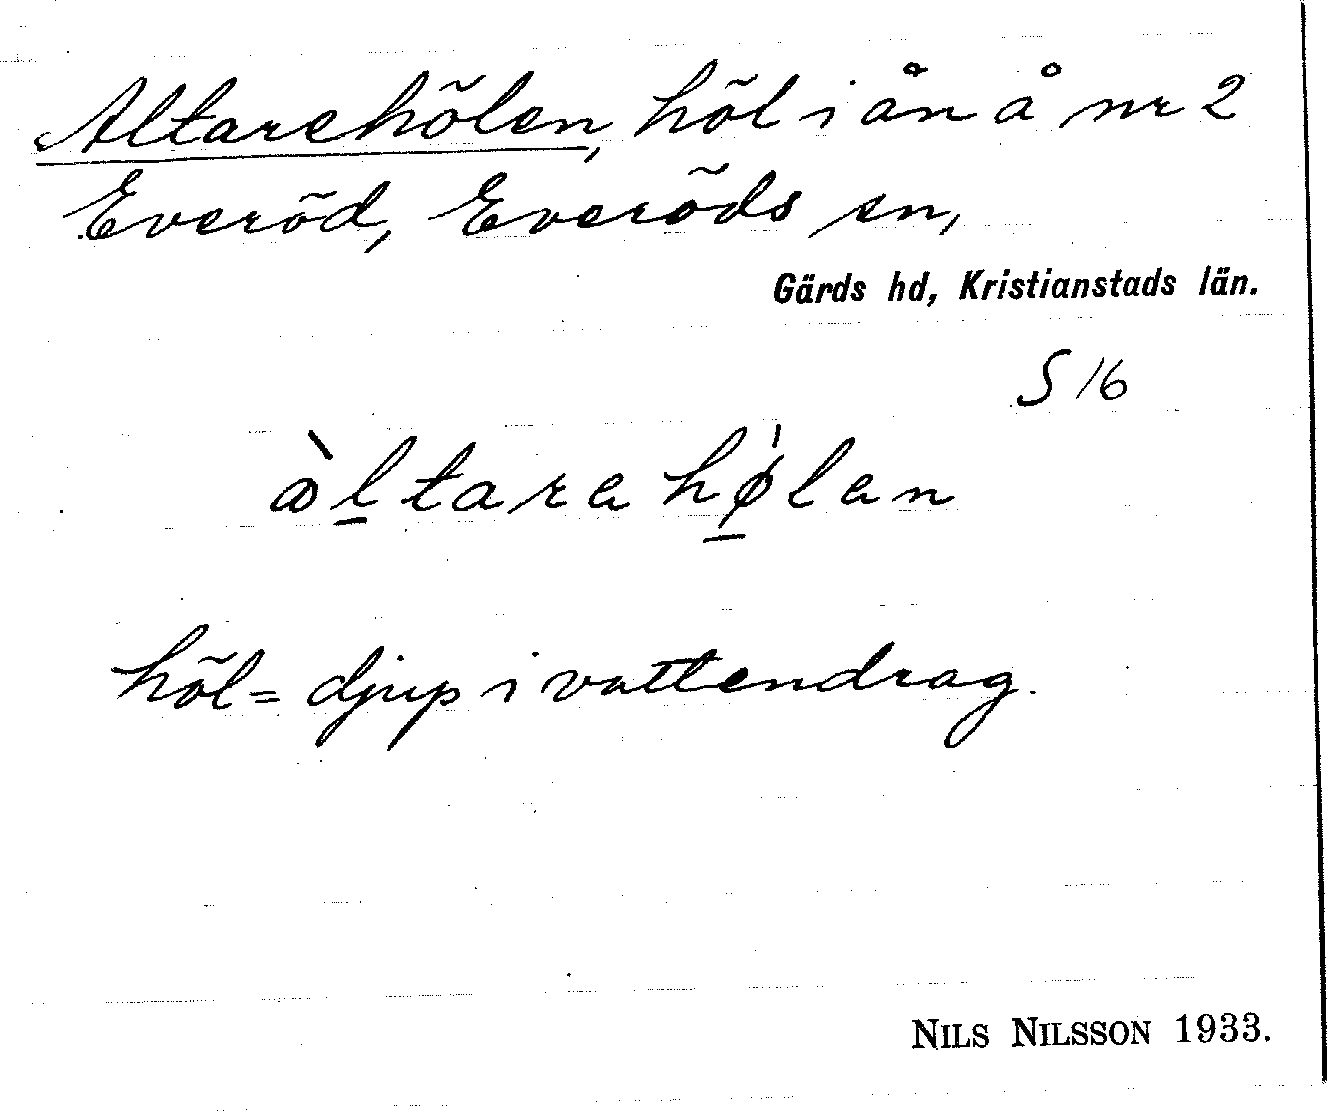 Altarehölen, höl i ån å nr 2
Everöd, Everöds sn,
Gärds hd, Kristianstads län.
S 16
àl̲tarahø̲̍lan
höl = djup i vattendrag.
NILS NILSSON 1933.